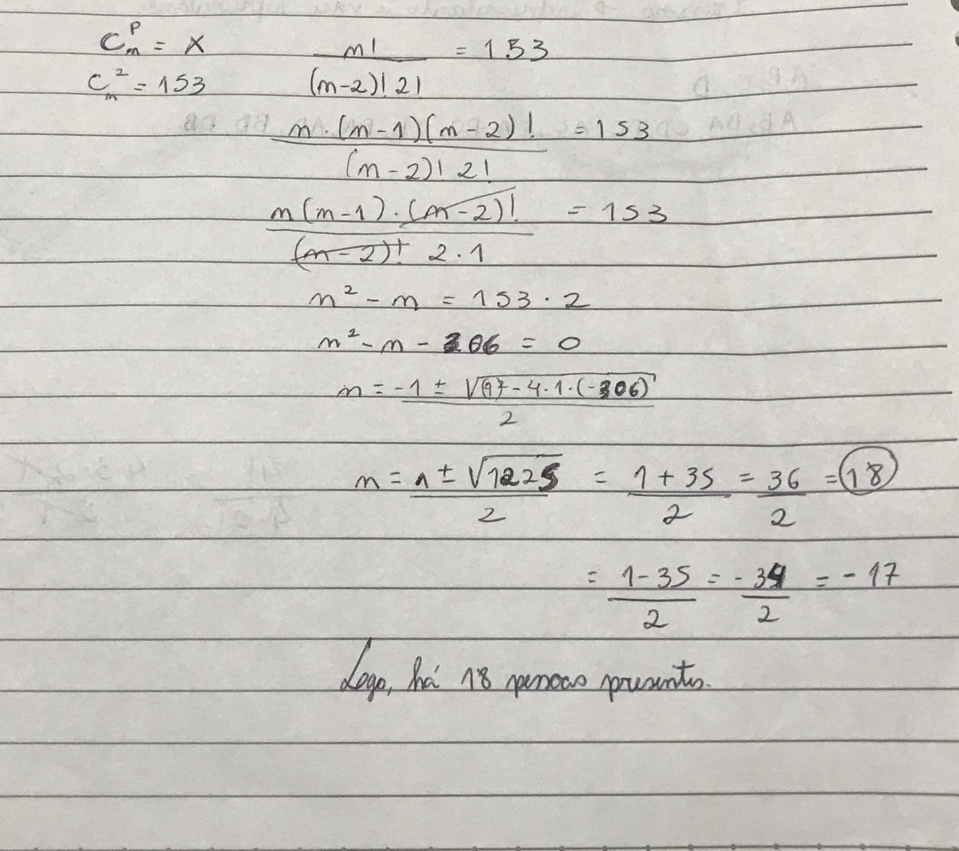 C_m^p = x     m! / (m-2)! 2! = 153
C_m^2 = 153
m · (m-1)(m-2)! / (m-2)! 2! = 153
m(m-1) · (m-2)! / (m-2)! 2·1 = 153
m² - m = 153 · 2
m² - m - 306 = 0
m = -1 ± √(1)² - 4·1·(-306) / 2
m = 1 ± √1225 / 2 = 1 + 35 / 2 = 36 / 2 = 18
= 1 - 35 / 2 = -34 / 2 = -17
Logo, há 18 pessoas presentes.